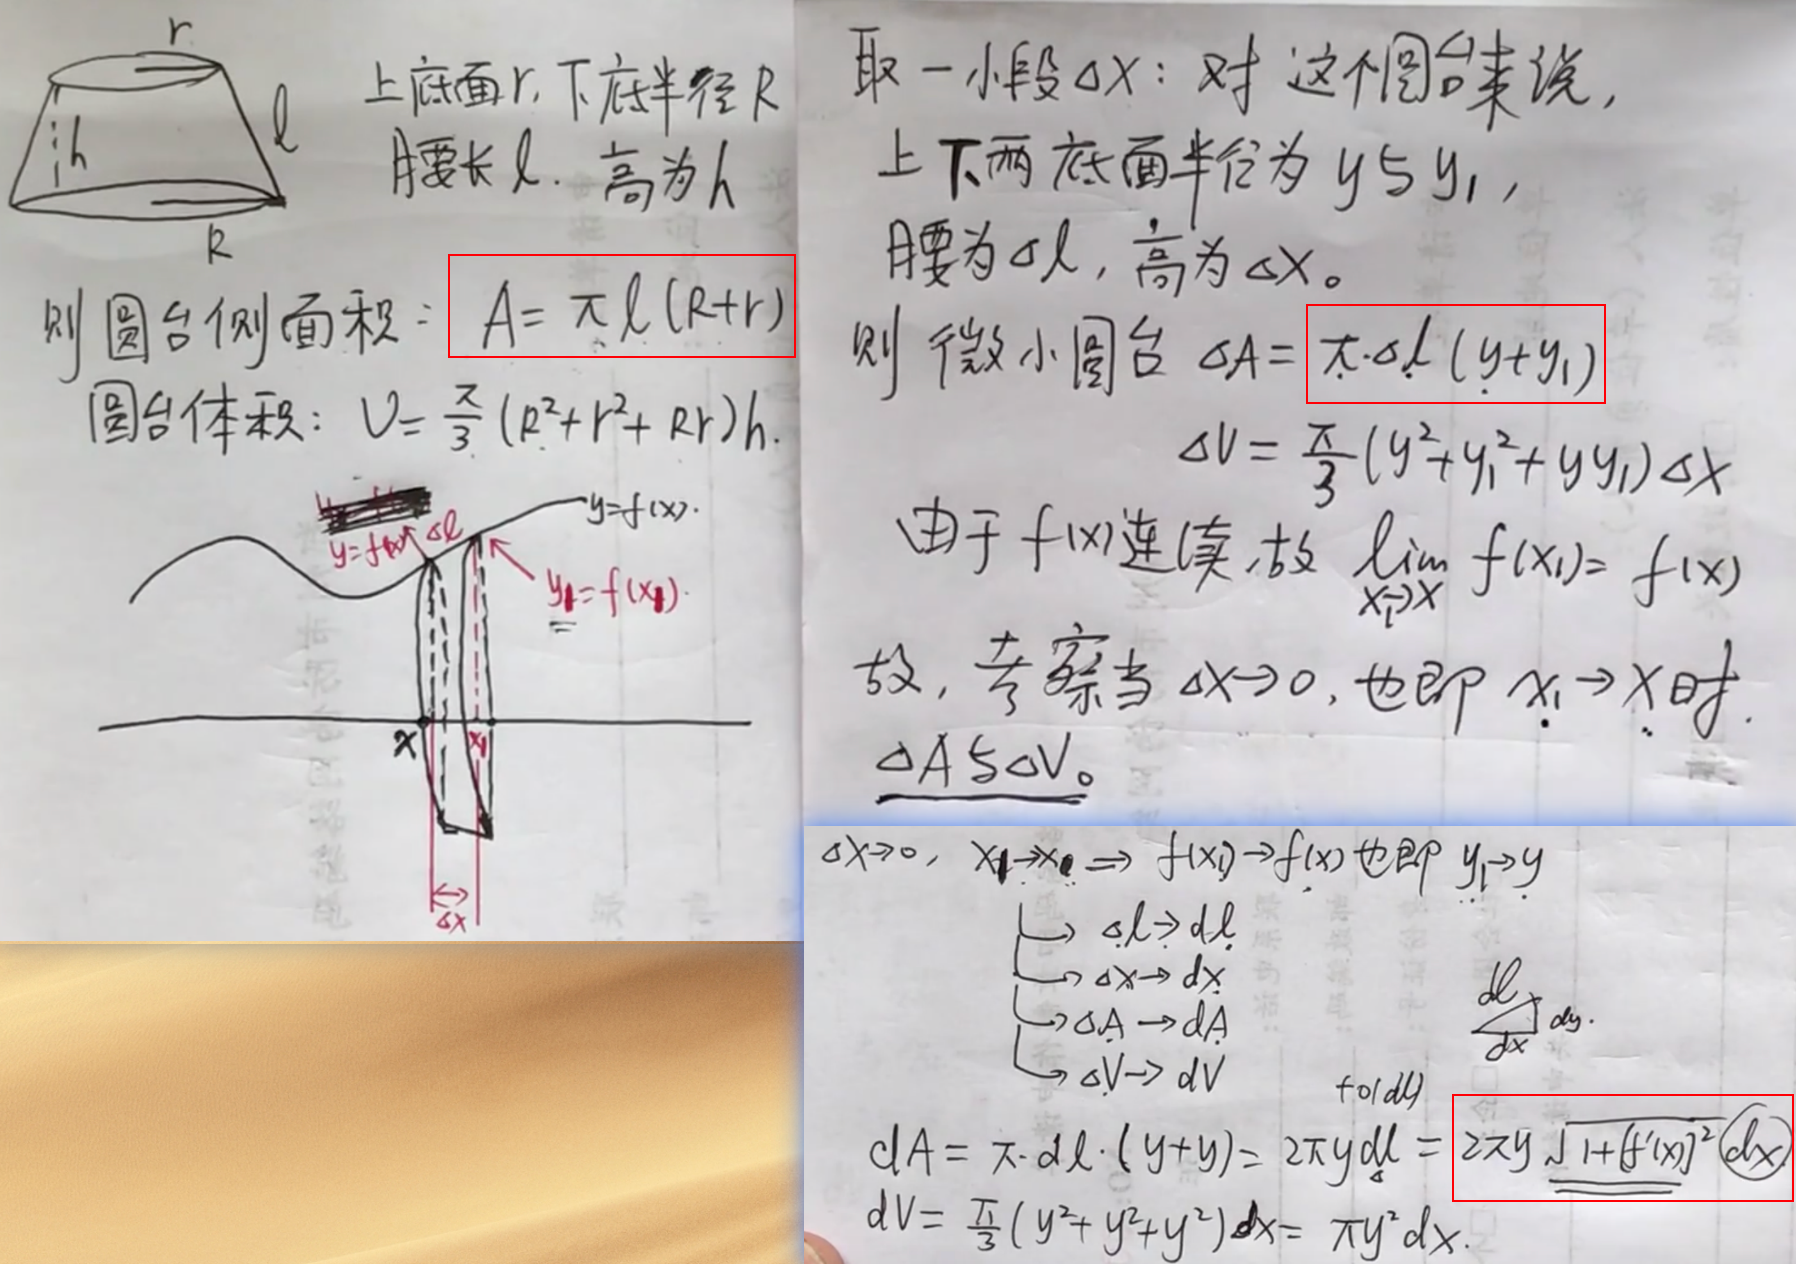 r
上底面r,下底半径R
h
l
腰长l.高为h
R
则圆台侧面积: A=πl(R+r)
圆台体积: V=π/3(R²+r²+Rr)h.
y=f(x).
y=f(x)
Δl
y₁=f(x₁).
x
x₁
Δx
取一小段Δx:对这个圆台来说,
上下两底面半径为y与y₁,
腰为Δl,高为Δx。
则微小圆台 ΔA=π·Δl(y+y₁)
ΔV=π/3(y²+y₁²+yy₁)Δx
由于f(x)连续,故 lim x₁→x f(x₁)=f(x)
故,考察当Δx→0,也即x₁→x时.
ΔA与ΔV。
Δx→0, x₁→x⇒f(x₁)→f(x)也即y₁→y
Δl→dl
Δx→dx
dl
dy.
dx
ΔA→dA
ΔV→dV
+o(dl)
dA=π·dl·(y+y)=2πydl=2πy√1+[f'(x)]² dx
dV=π/3(y²+y²+y²)dx=πy²dx.